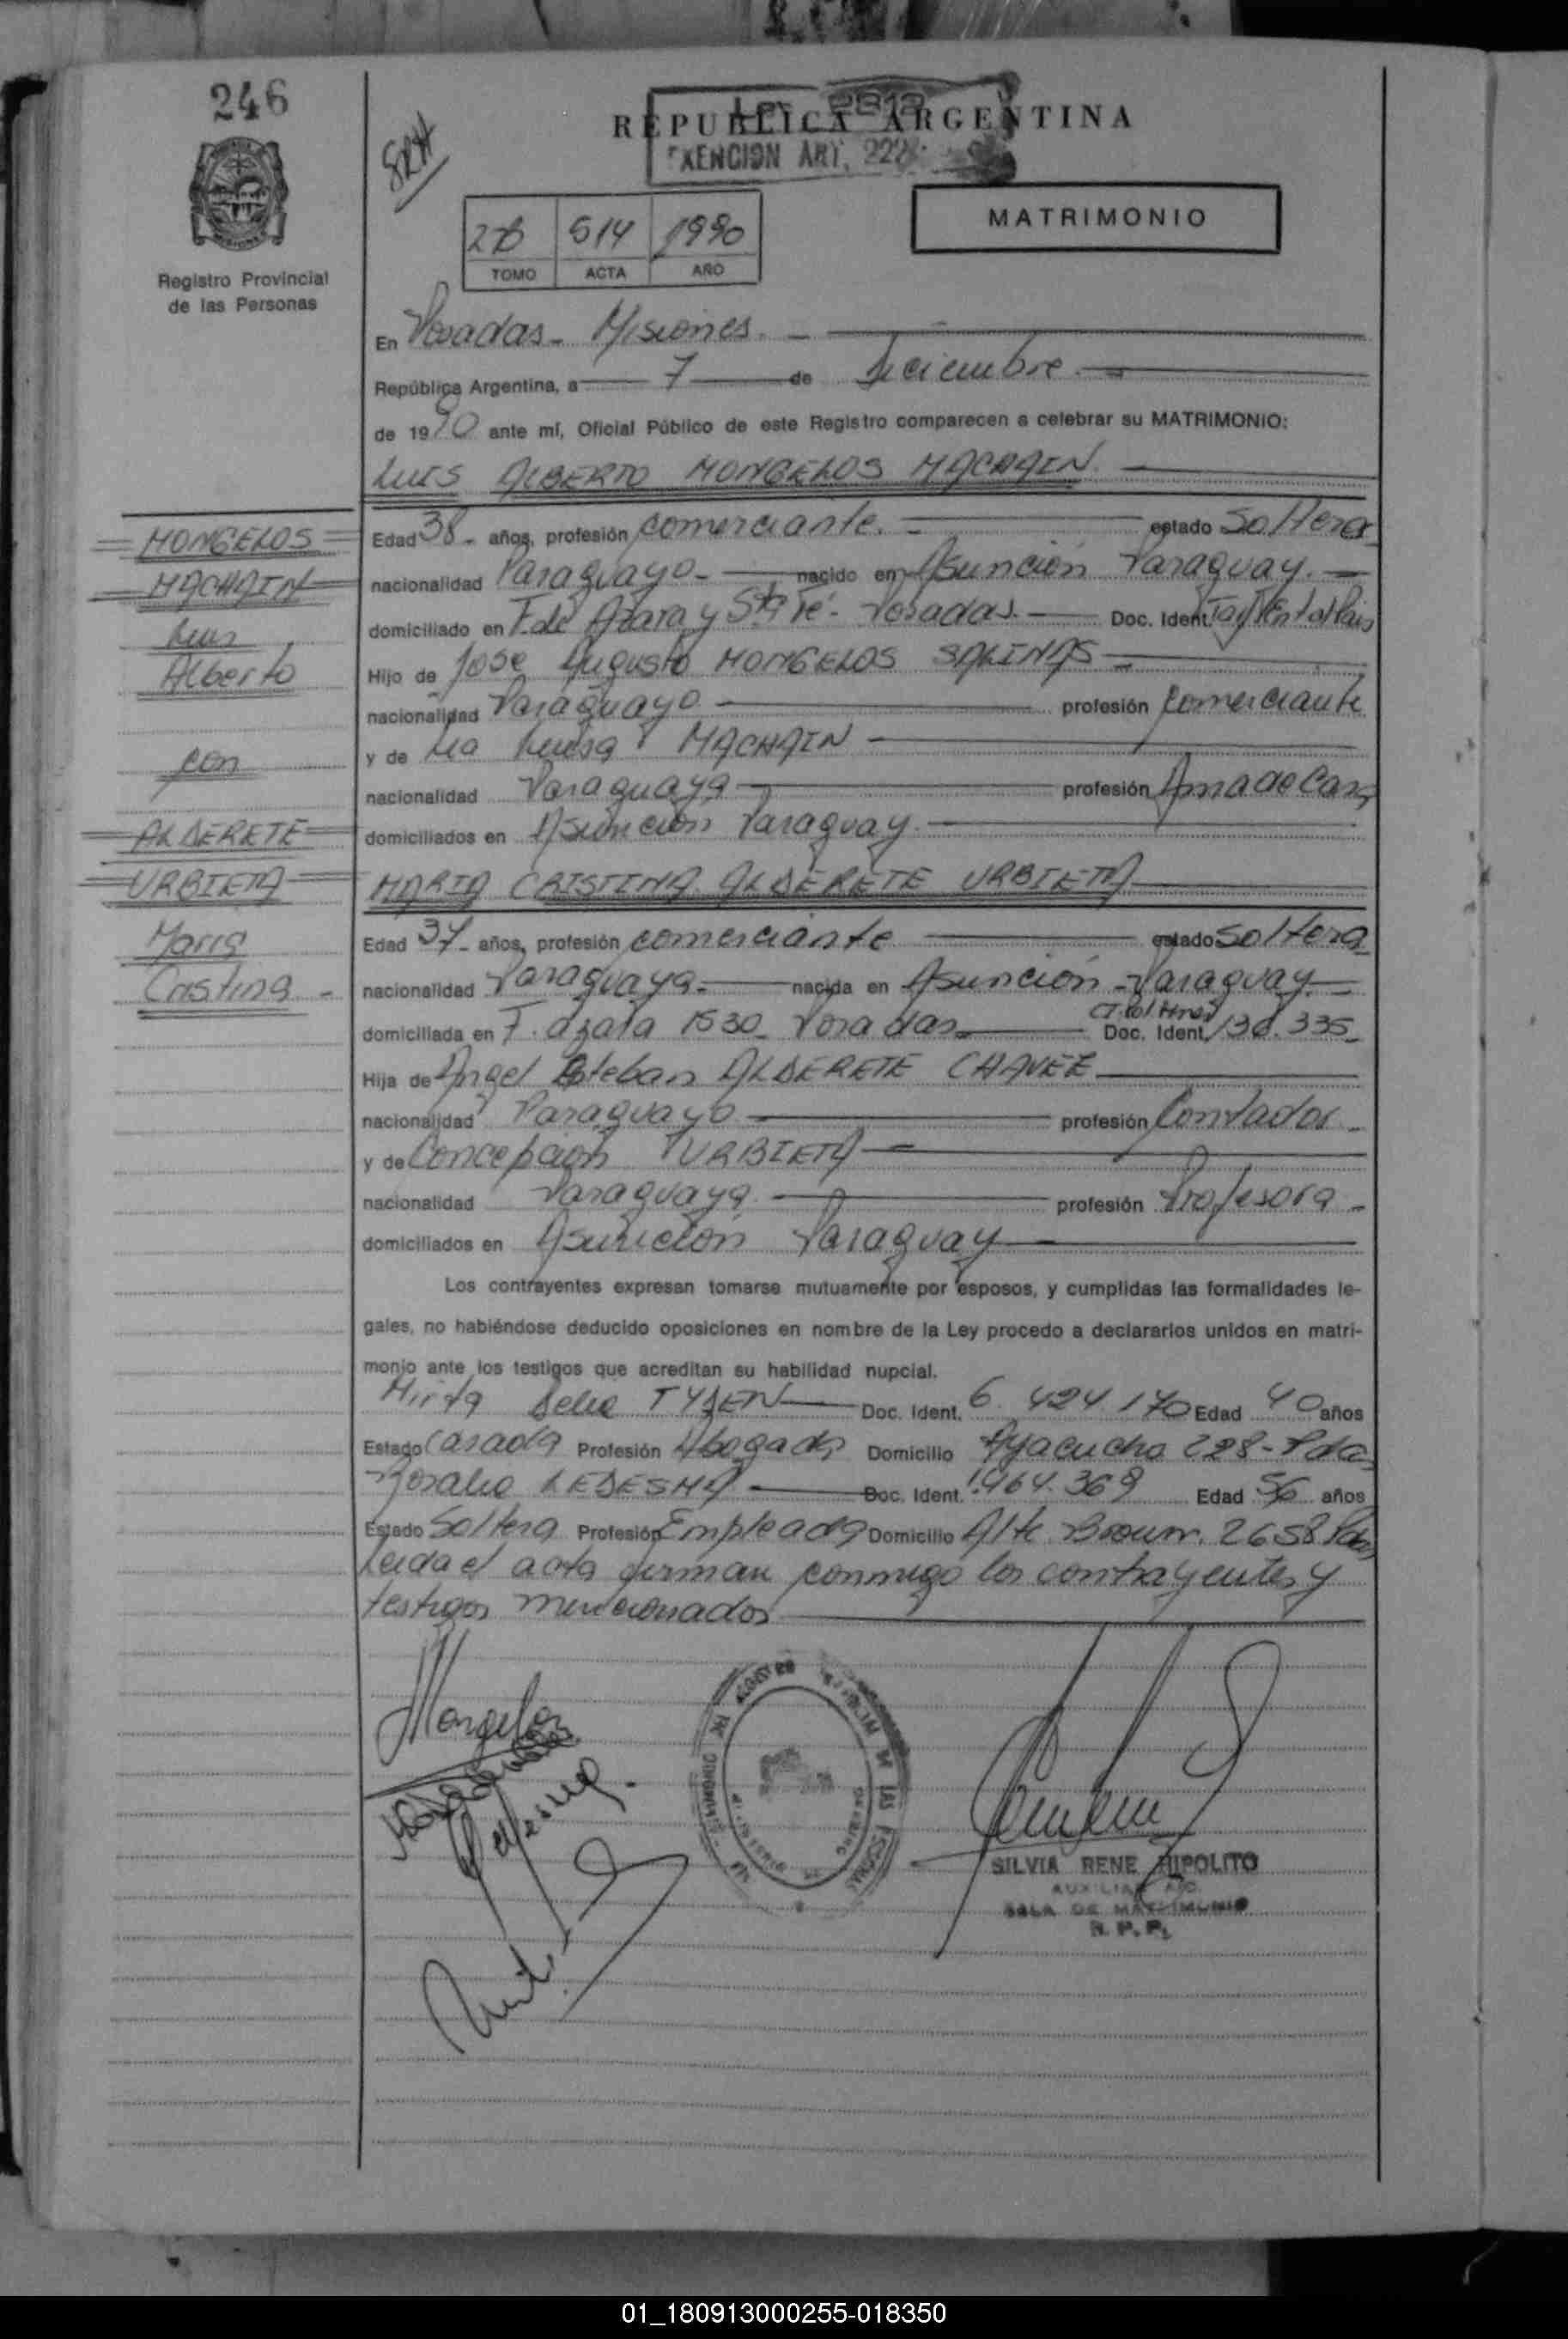 246
Registro Provincial
de las Personas
MONGELOS
MACHAIN
Luis
Alberto
con
ALDERETE
URBIETA
Maria
Cristina -
REPUBLICA ARGENTINA
EXENCION ART. 228
514 1990
TOMO ACTA AÑO
MATRIMONIO
En Posadas - Misiones. -
República Argentina, a 7 de Diciembre. -
de 1990 ante mí, Oficial Público de este Registro comparecen a celebrar su MATRIMONIO:
LUIS ALBERTO MONGELOS MACHAIN. -
Edad 38 - años, profesión comerciante. - estado Soltero
nacionalidad Paraguayo - nacido en Asunción Paraguay. -
domiciliado en F. de Azara y Sta Fé - Posadas. Doc. Ident.
Hijo de José Augusto MONGELOS SALINAS -
nacionalidad Paraguayo - profesión comerciante
y de Ma Luisa MACHAIN -
nacionalidad Paraguaya profesión Ama de Casa
domiciliados en Asunción Paraguay. -
MARIA CRISTINA ALDERETE URBIETA
Edad 37 - años, profesión comerciante estado Soltera
nacionalidad Paraguaya - nacida en Asunción - Paraguay
domiciliada en F. azara 1530 Posadas - Doc. Ident. 136.335 -
Hija de Angel Esteban ALDERETE CHAVEZ
nacionalidad Paraguayo profesión Contador -
y de Concepción URBIETA -
nacionalidad Paraguaya. profesión Profesora -
domiciliados en Asunción Paraguay -
Los contrayentes expresan tomarse mutuamente por esposos, y cumplidas las formalidades le-
gales, no habiéndose deducido oposiciones en nombre de la Ley procedo a declararlos unidos en matri-
monio ante los testigos que acreditan su habilidad nupcial.
Mirta Delia Doc. Ident. 6.424.170 Edad 40 años
Estado Casada Profesión Abogada Domicilio Ayacucho 228 - Pdas
Rosalia LEDESMA Doc. Ident. 1.964.369 Edad 56 años
Estado Soltera Profesión Empleada Domicilio Alte Brown. 2658 Pdas
Leida el acta firman conmigo los contrayentes y
testigos mencionados
Mongelos
SILVIA RENE HIPOLITO
AUXILIAR
SALA DE MATRIMONIO
R. P. P.
01_180913000255-018350